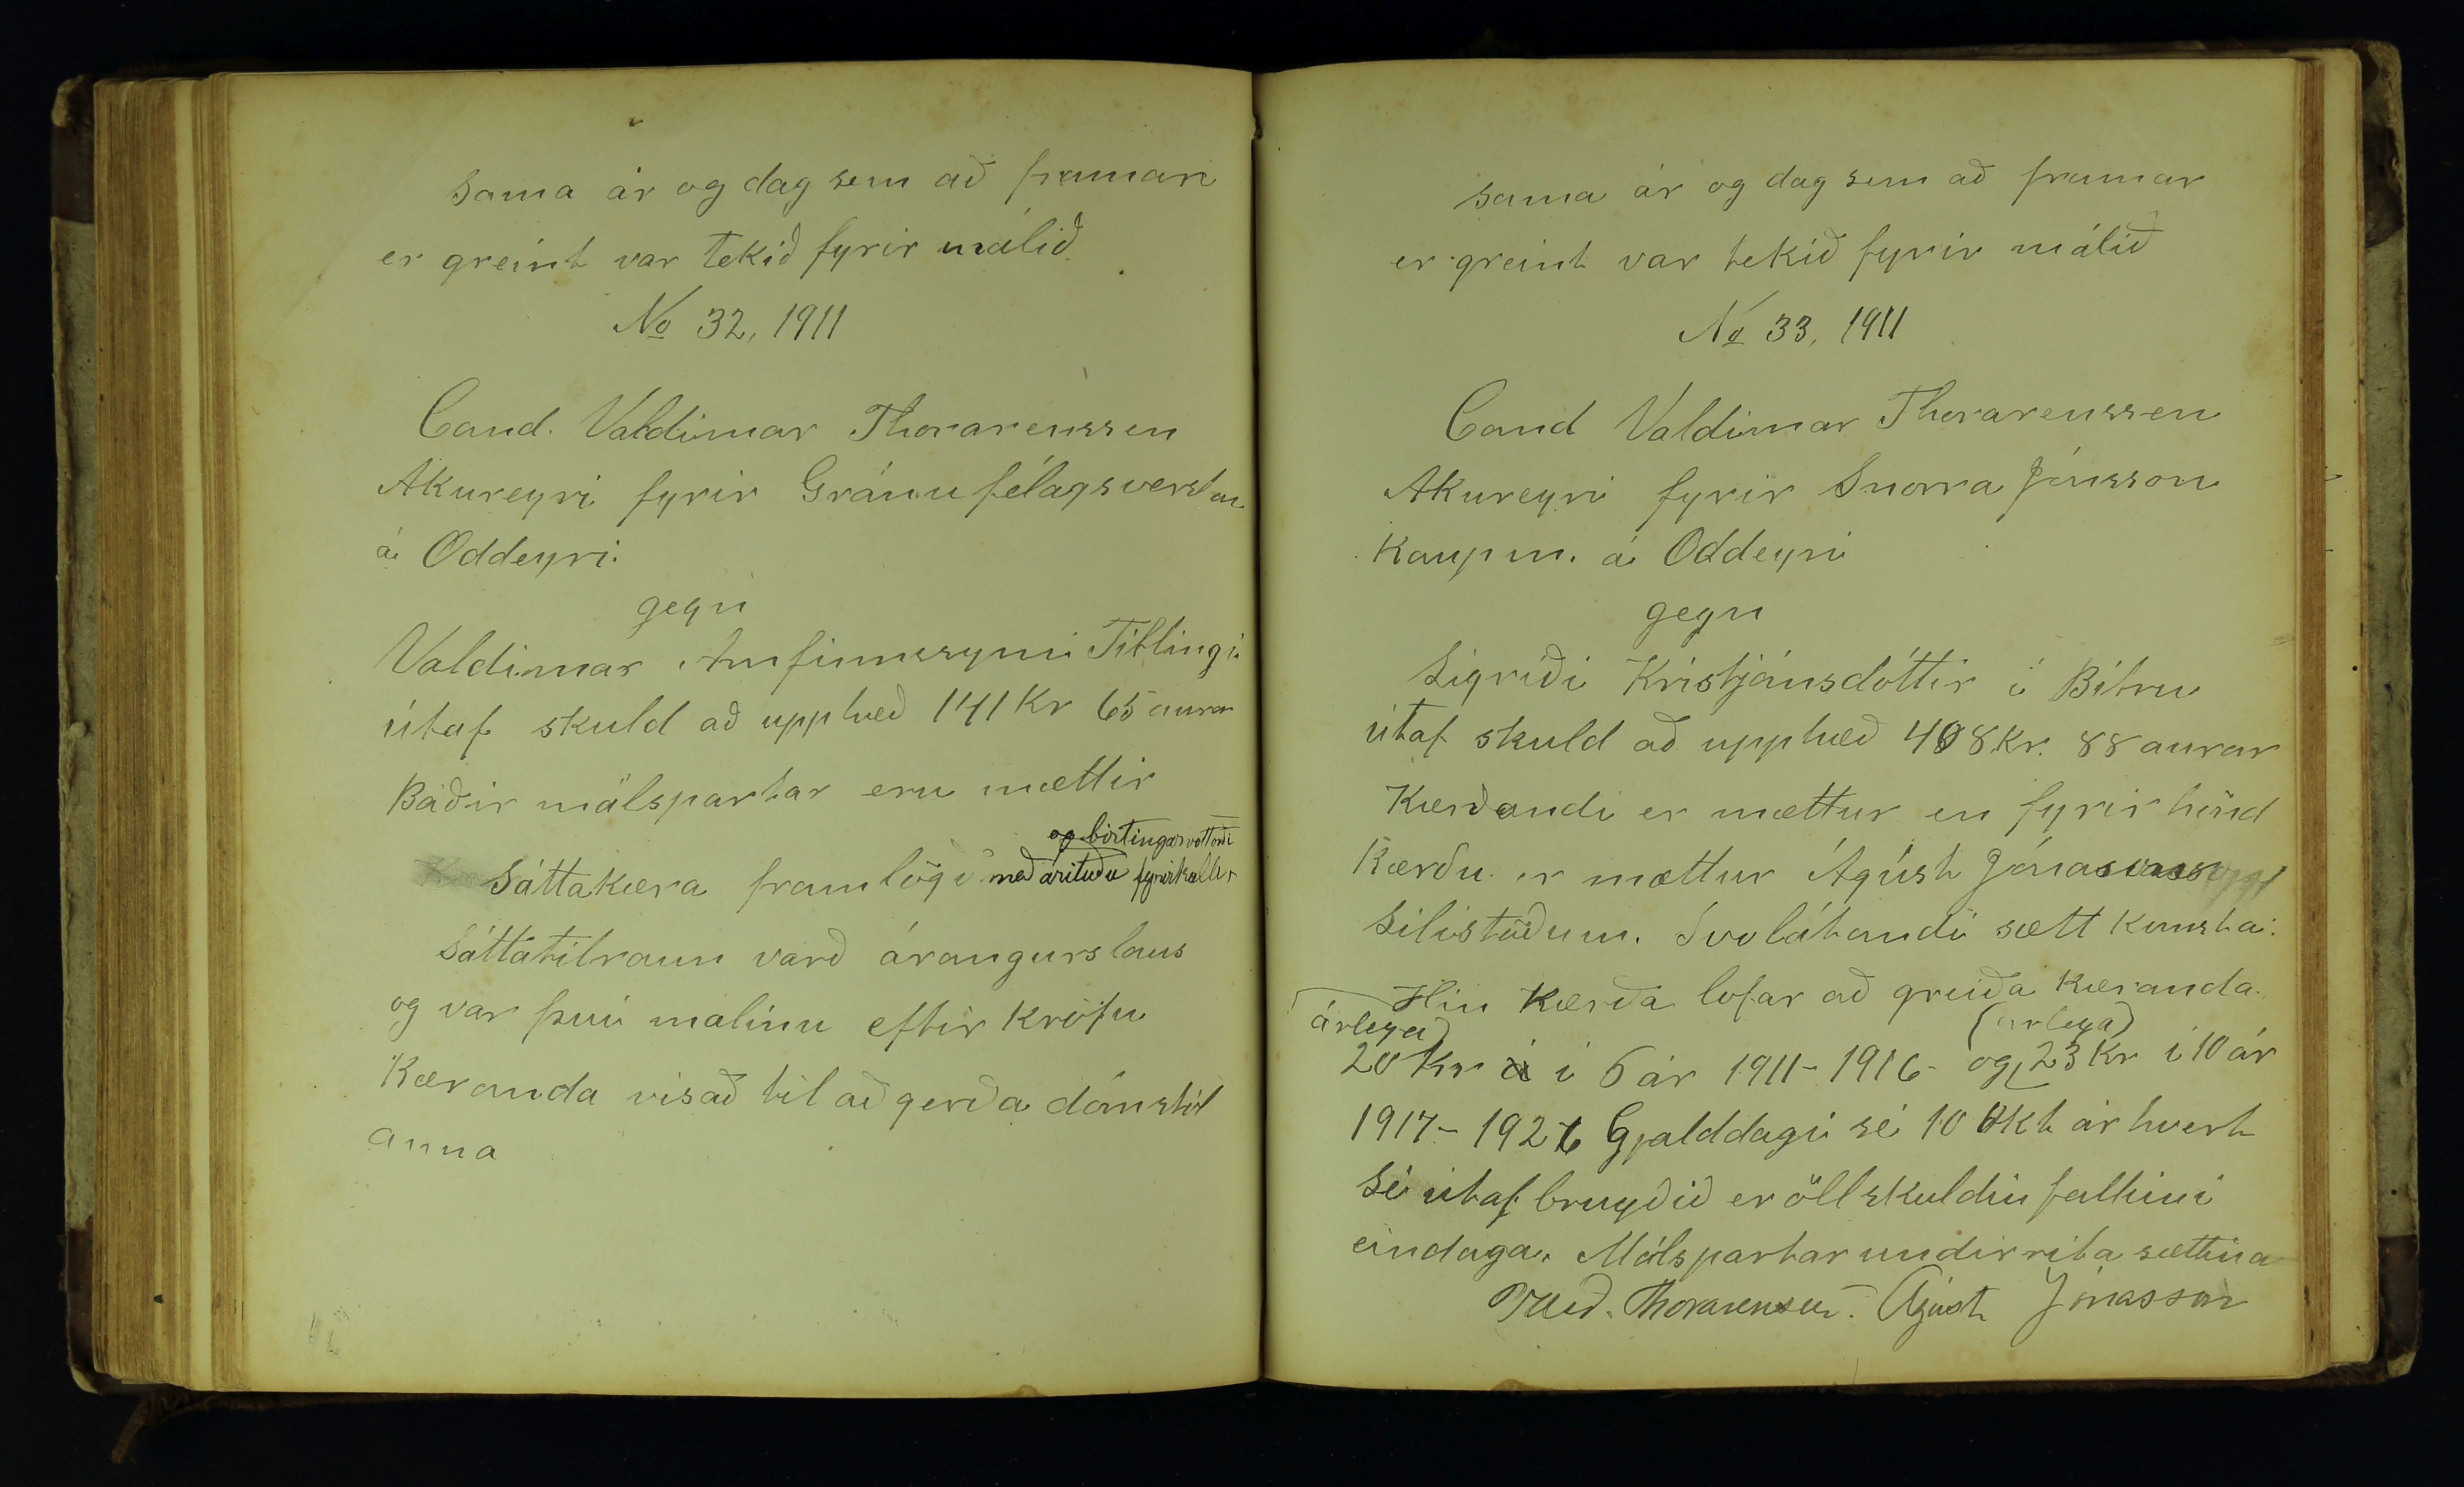 Sama ár og dag sem að framan
er greint var tekið fyrir málið
No 32, 1911
Cand. Valdimar Thorarenssen
Akureyri fyrir Gránufélagsverslun
á Oddeyri.
gegn
Valdimar Arnfinnssyni Titlingi
útaf skuld að upphæð 141 Kr 65 aurar
Báðir málspartar eru mættir
og birtingarvottorði
Sáttakæra framlögð með árituðu fyrirkalli
Sáttatilraun varð árangurslaus
og var því malinu eftir kröfu
Kæranda visað til aðgerða dómstól
anna
sama ár og dag sem að framar
er greint var tekið fyrir málið
No 33, 1911
Cand Valdimar Thorarenssen
Akureyri fyrir Snorra Jónsson
Kaupm. á Oddeyri
gegn
Sigríði Kristjánsdóttir í Bitru
útaf skuld að upphæð 408 Kr. 88 aurar
Kærðandi er mættur en fyrir hönd
Kærðu er mættur Ágúst Jónasson
Silistöðum. Svolátandi sætt komst á:
Hin Kærða lofar að greiða Kæranda
árlega (árlega)
20 Kr í 6 ár 1911-1916 og 23 Kr í 10 ár
1917-1926 Gjalddagi sé 10 Okt ár hvert
Sé útaf brugðið er öll skuldin fallin í
eindaga. Málspartar undirrita sættina
Vald. Thorarensen. Ágúst Jónasson